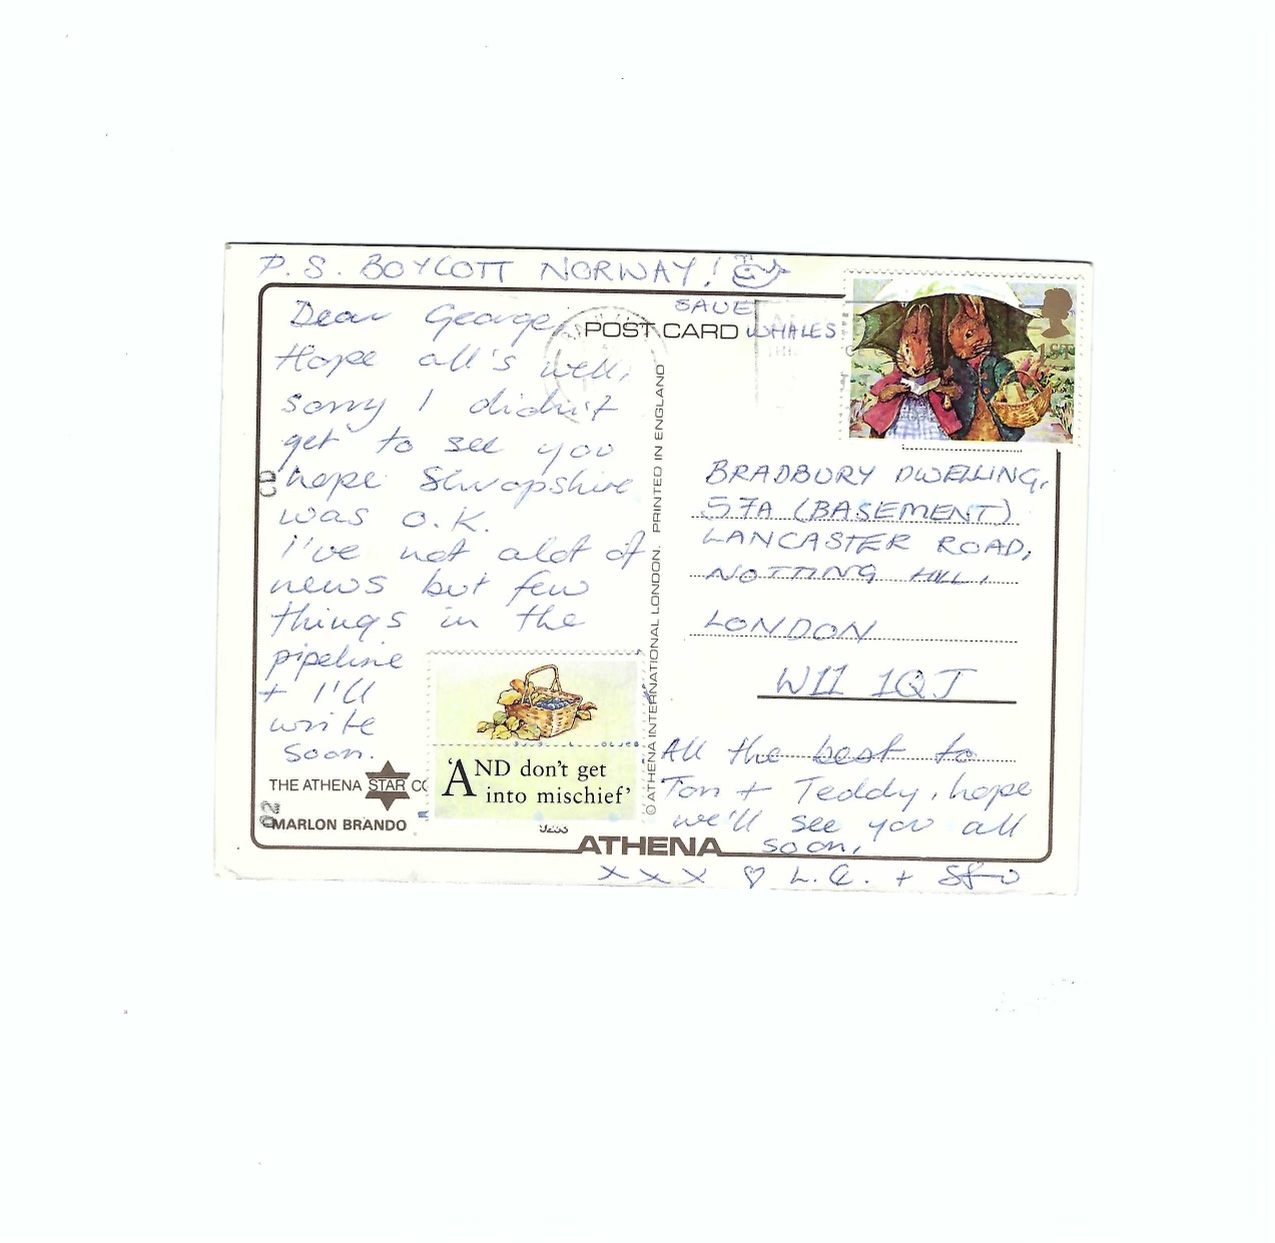 P.S. BOYCOTT NORWAY!
SAVE
WHALES
Dear George,
Hope all's well,
sorry I didn't
get to see you
hope Shropshire
was O.K.
I've not alot of
news but few
things in the
pipeline
+ I'll
write
soon.
THE ATHENA STAR CO
MARLON BRANDO
'AND don't get
into mischief'
POST CARD
© ATHENA INTERNATIONAL LONDON. PRINTED IN ENGLAND
1ST
BRADBURY DWELLING,
57A (BASEMENT)
LANCASTER ROAD,
NOTTING HILL,
LONDON
W11 1QJ
All the best to
Tom + Teddy, hope
we'll see you all
soon,
ATHENA
x x x ♡ L.C. +